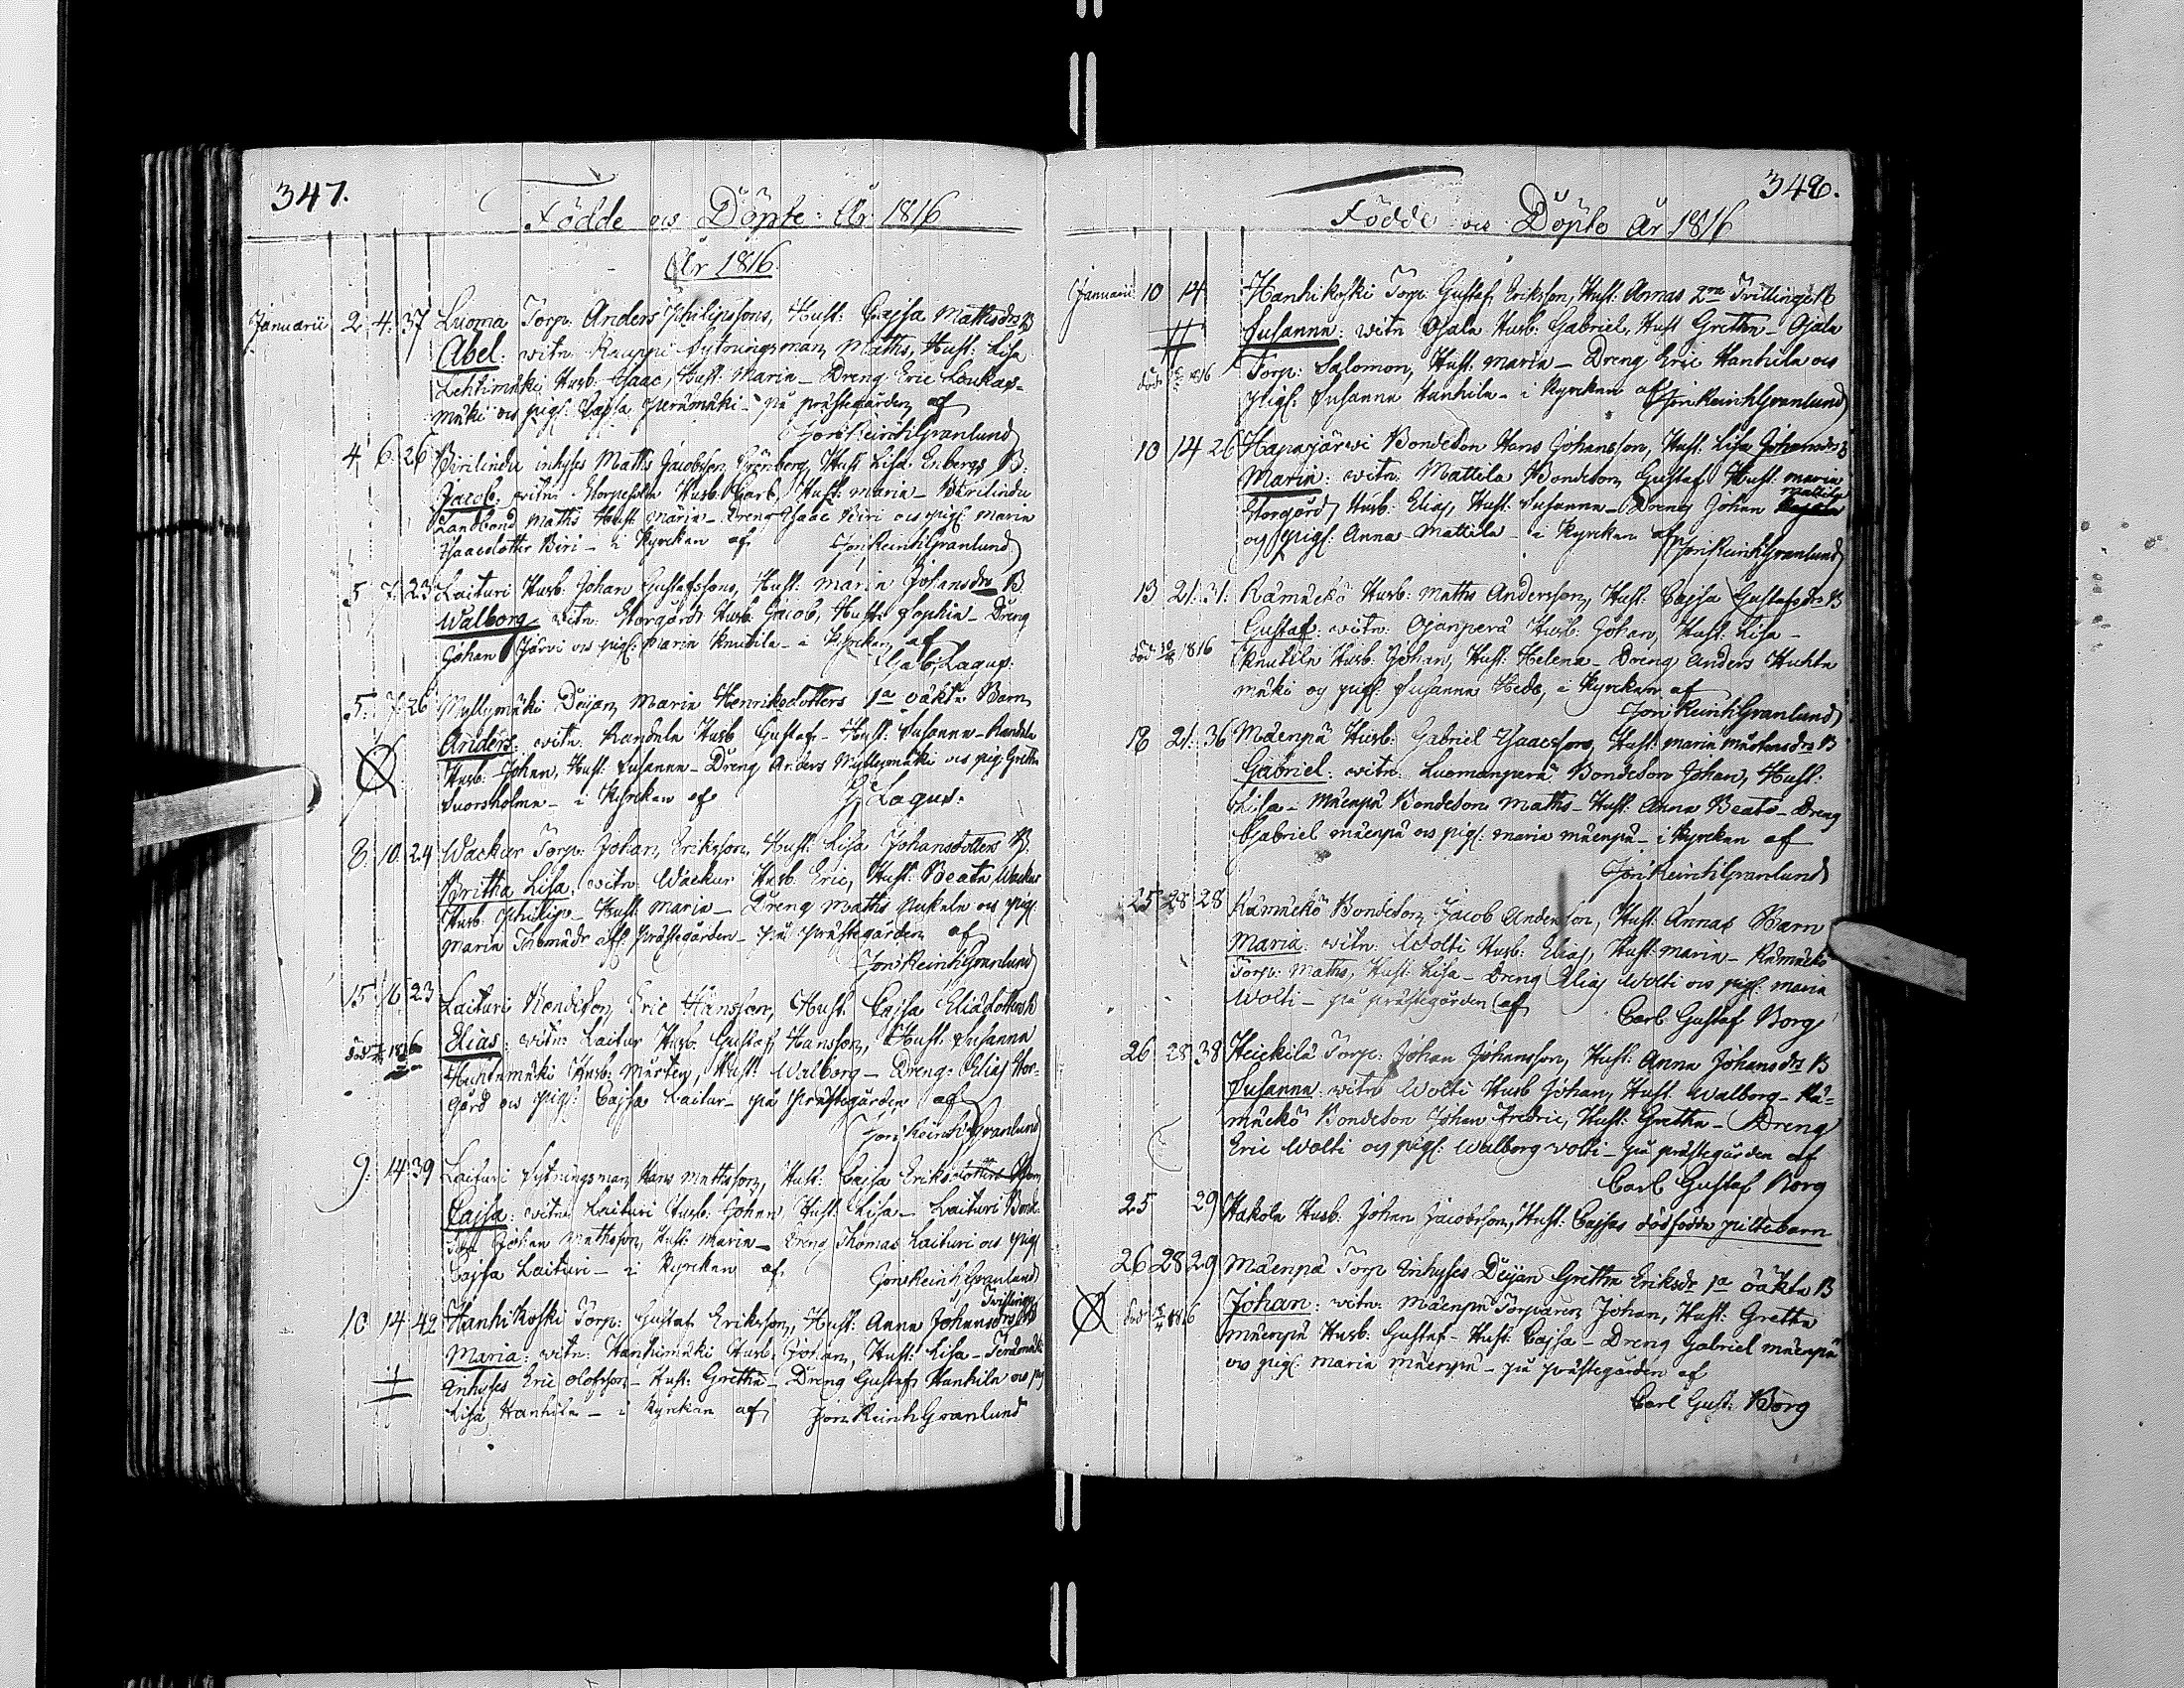 347.
Födde ocs Döpte År 1816
År 1816.
Januarii 2. 4. 37 Luoma Torp: Anders Philipssons, Hust: Cajsa Mattsdrs B
Abel: witn: Kauppi Sytningsman Matths, Hust: Lisa
Lehtimäki Husb: Isaac, Hust: Maria - Dreng Eric Loukas-
mäki ocs pig: Cajsa Perämäki - på prästegården af
Jon: Reinh Granlund
4. 6. 26 Birilindu inhyses Matths Jacobsson Grönberg, Hust Lisa Enbergs B:
Jacob: witn: Storpeldola Husb: Carl, Hust: Maria - Birilindu
Landbond Matths Hust Maria - Dreng Isaac Biri ocs pig: Maria
Isaacsdotter Biri - i Kyrckan af Jon Reinh Granlund
5. 7. 23 Laituri Husb: Johan Gustafssons, Hust: Maria Johansdrs B
Walborg: witn: Storgård Husb: Jacob, Hust: Sophia - Dreng
Johan Järvi ocs pig: Maria Knutila - i Kyrckan af
Gab: Lagus.
5. 7. 26 Myllymäki Deijan Maria Henriksdotters 1a oäkta Barn
Anders: witn: Kandela Husb Gustaf - Hust: Susanna - Kandela
Husb: Johan, Hust: Susanna - Dreng Anders Myllymäki ocs pig: Gretha
Suorsholma - i Kyrckan af G: Lagus.
8. 10. 24 Wackur Torp: Johan Eriksson, Hust: Lisa Johansdotters B.
Britha Lisa: witn: Wackur Husb: Eric, Hust: Beata, Wackur
Husb: Philip - Hust: Maria - Dreng Matths Pukala ocs pig:
Maria Thomædr af prästegården - på prästegården af
Jon Reinh Granlund
15 16 23 Laituri Bondeson Eric Hansson, Hust: Cajsa Eliædotters B
död 1816 Elias: witn: Laitur Husb: Gustaf Hansson, Hust: Susanna
Huhtamäki Husb: Mårten, Hust: Walborg - Dreng: Elias Stor-
gård ocs pig: Cajsa Laitur - på prästegården af
Jon Reinh Granlund
9. 14. 39 Laituri Sytningsman Hans Mattsson, Hust: Cajsa Eriksdotters Barn
Cajsa: witn: Laituri Husb: Johan Hust: Lisa - Laituri Bond-
son Johan Mathsson, Hust: Maria - Dreng Thomas Laituri ocs pig:
Cajsa Laituri - i Kyrckan af Jon Reinh Granlund
10 14 42 Hanhikoski Torp: Gustaf Eriksson, Hust: Anna Johansdrs Tvillinge B
Maria: witn: Hanhimäki Husb: Johan, Hust: Lisa -
Inhyses Eric Olofsson - Hust: Gretha - Dreng Gustaf Hanhila ocs pig
Lisa Hanhila - i Kyrckan af Jon Reinh Granlund
348.
Födde ocs Döpte År 1816
Januarii 10 14 Hanhikoski Torp: Gustaf Eriksson, Hust: Annas 2ra Tvillinge B
Susanna: witn Ojala Husb: Gabriel, Hust Gretha - Ojala
död 1816 Torp: Salomon, Hust: Maria - Dreng Eric Hanhila ocs
pig: Susanna Hanhila - i Kyrckan af Jon Reinh Granlund
10 14 26 Hapajärwi Bondeson Hans Johansson, Hust: Lisa Johansdrs B
Maria: witn: Mattila Bondeson Gustaf Hust: Maria
Storgård Husb: Elias, Hust: Susanna - Dreng Johan Mattila
ocs pig: Anna Mattila - i Kyrckan af Jon Reinh Granlund
13 21. 31. Rämäckö Husb: Matths Andersson, Hust: Cajsa Gustafsdrs B
Gustaf: witn: Ojanperä Husb: Johan, Hust: Lisa -
död 1816 Knutila Husb: Johan, Hust: Helena - Dreng Anders Huhta
mäki og pig: Susanna Hede, i Kyrckan af
Jon Reinh Granlund
18 21. 36 Mäenpä Husb: Gabriel Isaacssons, Hust: Maria Mårtensdrs B
Gabriel: witn: Luomanperä Bondeson Johan, Hust:
Lisa - Mäenpä Bondeson Matths - Hust: Anna Beata - Dreng
Gabriel Mäenpä ocs pig: Maria Mäenpä - i Kyrckan af
Jon Reinh Granlund
25 28 28 Rämäckö Bondeson Jacob Andersson, Hust: Annas Barn
Maria: witn: Wolti Husb: Elias, Hust: Maria - Rämäckö
Torp: Matths, Hust: Lisa - Dreng Elias Wolti ocs pig: Maria
Wolti - på prästegården af
Carl Gustaf Borg
26 28 38 Heickilä Torp: Johan Johansson, Hust: Anna Johansdrs B
Susanna: witn Wolti Husb Johan, Hust Walborg - Rä-
mäckö Bondeson Johan Fredric, Hust: Gretha - Dreng
Eric Wolti ocs pig: Walborg Wolti - på prästegården af
Carl Gustaf Borg
25 29 Hakola Husb: Johan Jacobsson, Hust: Cajsas dödfödda piltebarn
26 28 29 Mäenpä Torp Inhyses Deijan Gretha Eriksdr 1a oäkta B
död 1816 Johan: witn: Mäenpä Torparen Johan, Hust: Gretha
Mäenpä Husb: Gustaf - Hust: Cajsa - Dreng Gabriel Mäenpä
ocs pig: Maria Mäenpä - på prästegården af
Carl Gust: Borg